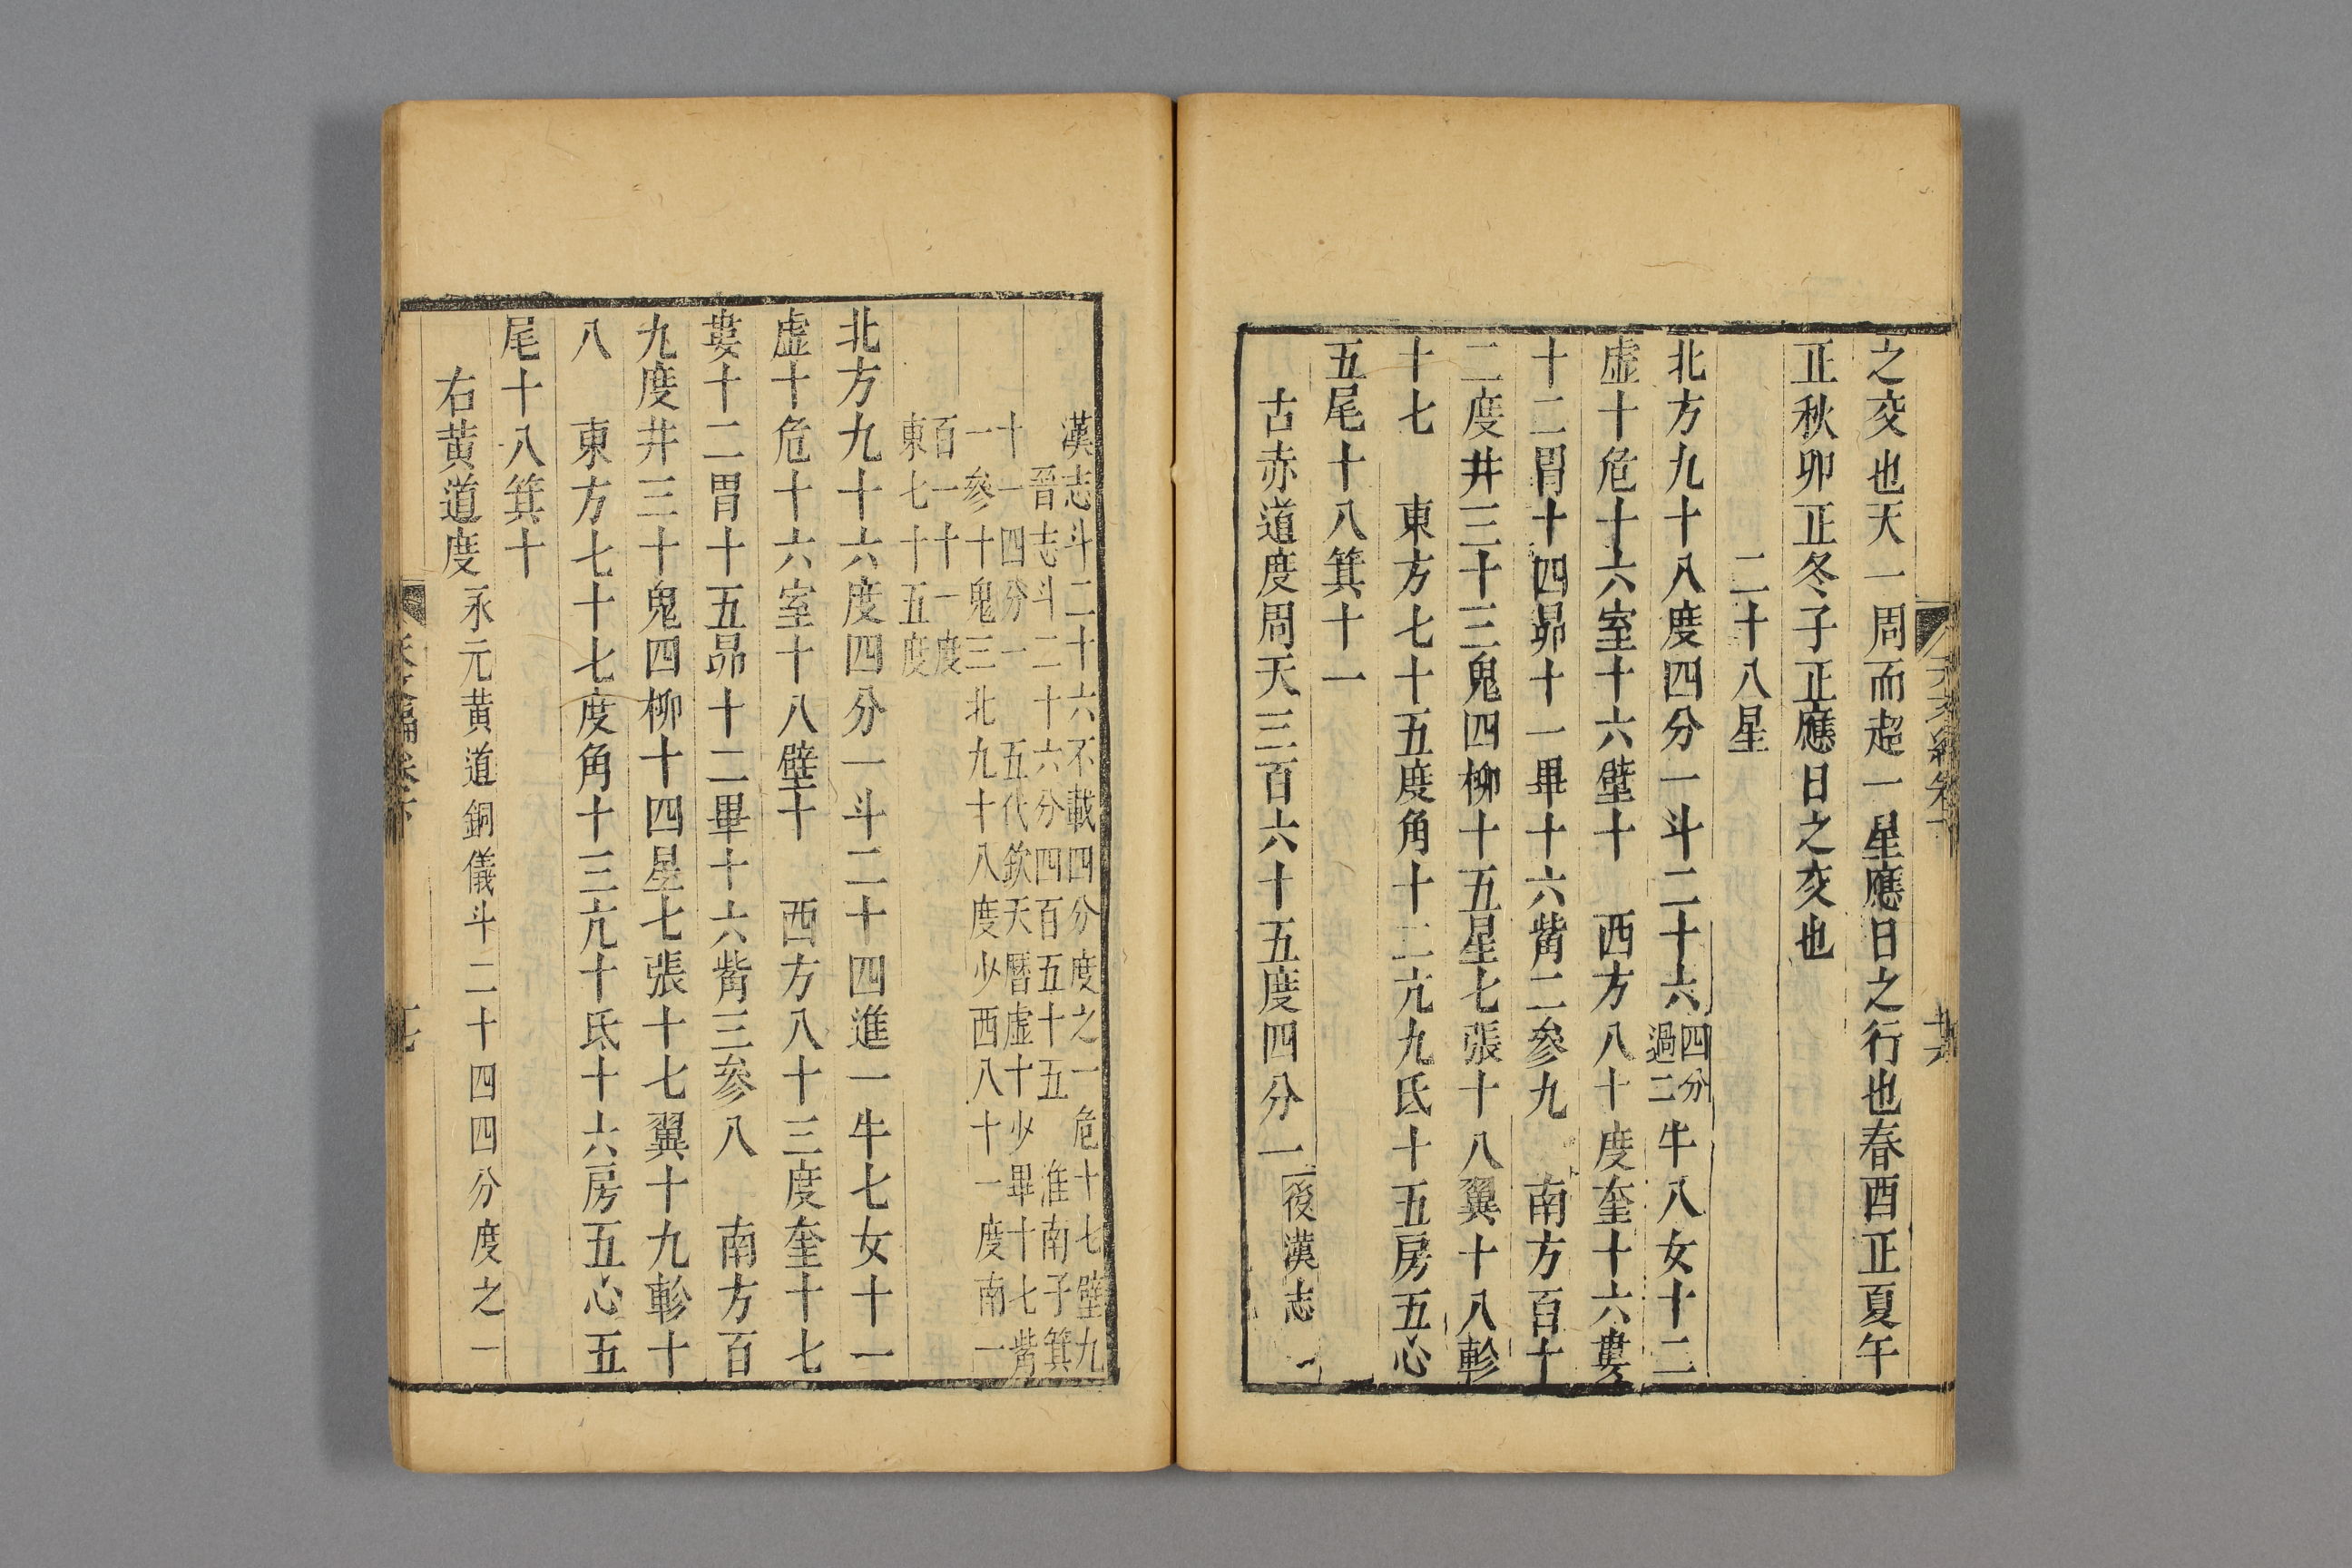 之交也天一周而超一星應日之行也春酉正夏午
正秋卯正冬子正應日之交也
二十八星
北方九十八度四分一斗二十六四分過二牛八女十二
虛十危十六室十六壁十　西方八十度奎十六婁
十二胃十四昴十一畢十六觜二參九　南方百十
二度井三十三鬼四柳十五星七張十八翼十八軫
十七　東方七十五度角十二亢九氐十五房五心
五尾十八箕十一
古赤道度周天三百六十五度四分一後漢志
漢志斗二十六不載四分度之一危十七壁九
晉志斗二十六分四百五十五　淮南子箕
十一四分一　五代欽天曆虛十少畢十七觜
一參十鬼三北九十八度少西八十一度南一
百一十一度
東七十五度
北方九十六度四分一斗二十四進一牛七女十一
虛十危十六室十八壁十　西方八十三度奎十七
婁十二胃十五昴十二畢十六觜三參八　南方百
九度井三十鬼四柳十四星七張十七翼十九軫十
八　東方七十七度角十三亢十氐十六房五心五
尾十八箕十
右黃道度永元黃道銅儀斗二十四四分度之一